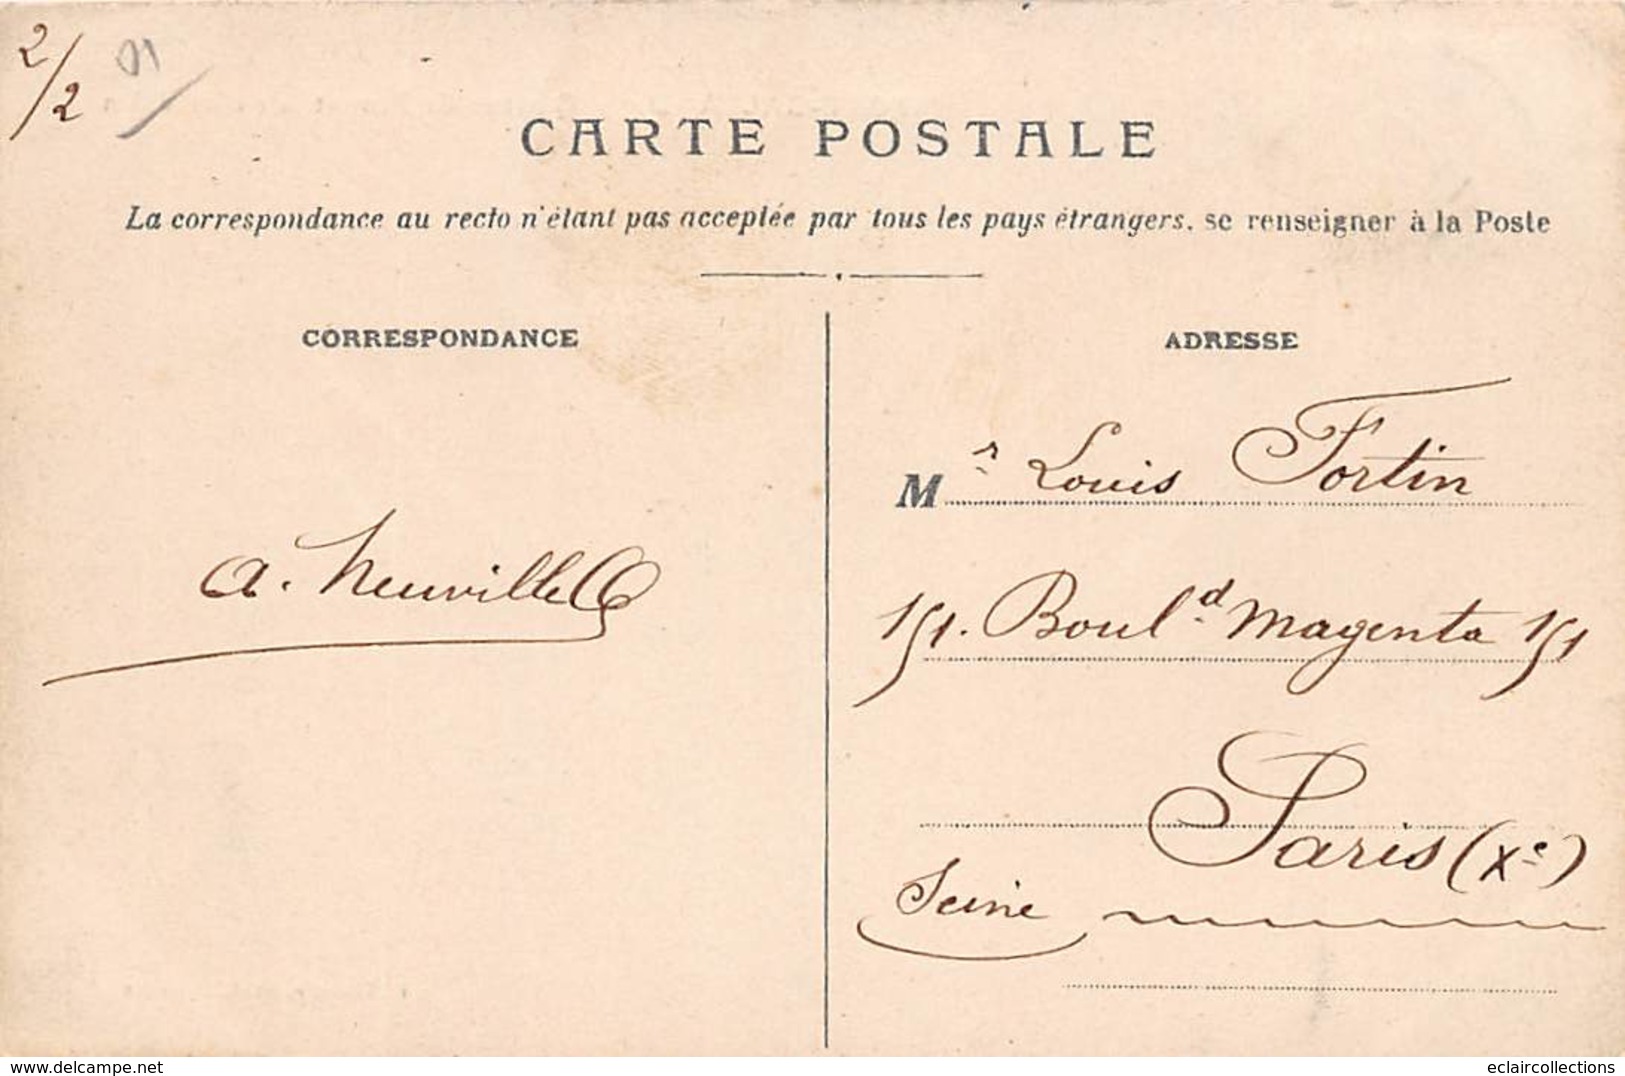 2/2
CARTE POSTALE
La correspondance au recto n'étant pas acceptée par tous les pays étrangers, se renseigner à la Poste
CORRESPONDANCE
ADRESSE
Mr Louis Fortin
a. Neuville
151. Boul.d Magenta 151
Paris (Xe)
Seine
www.delcampe.net
eclaircollections